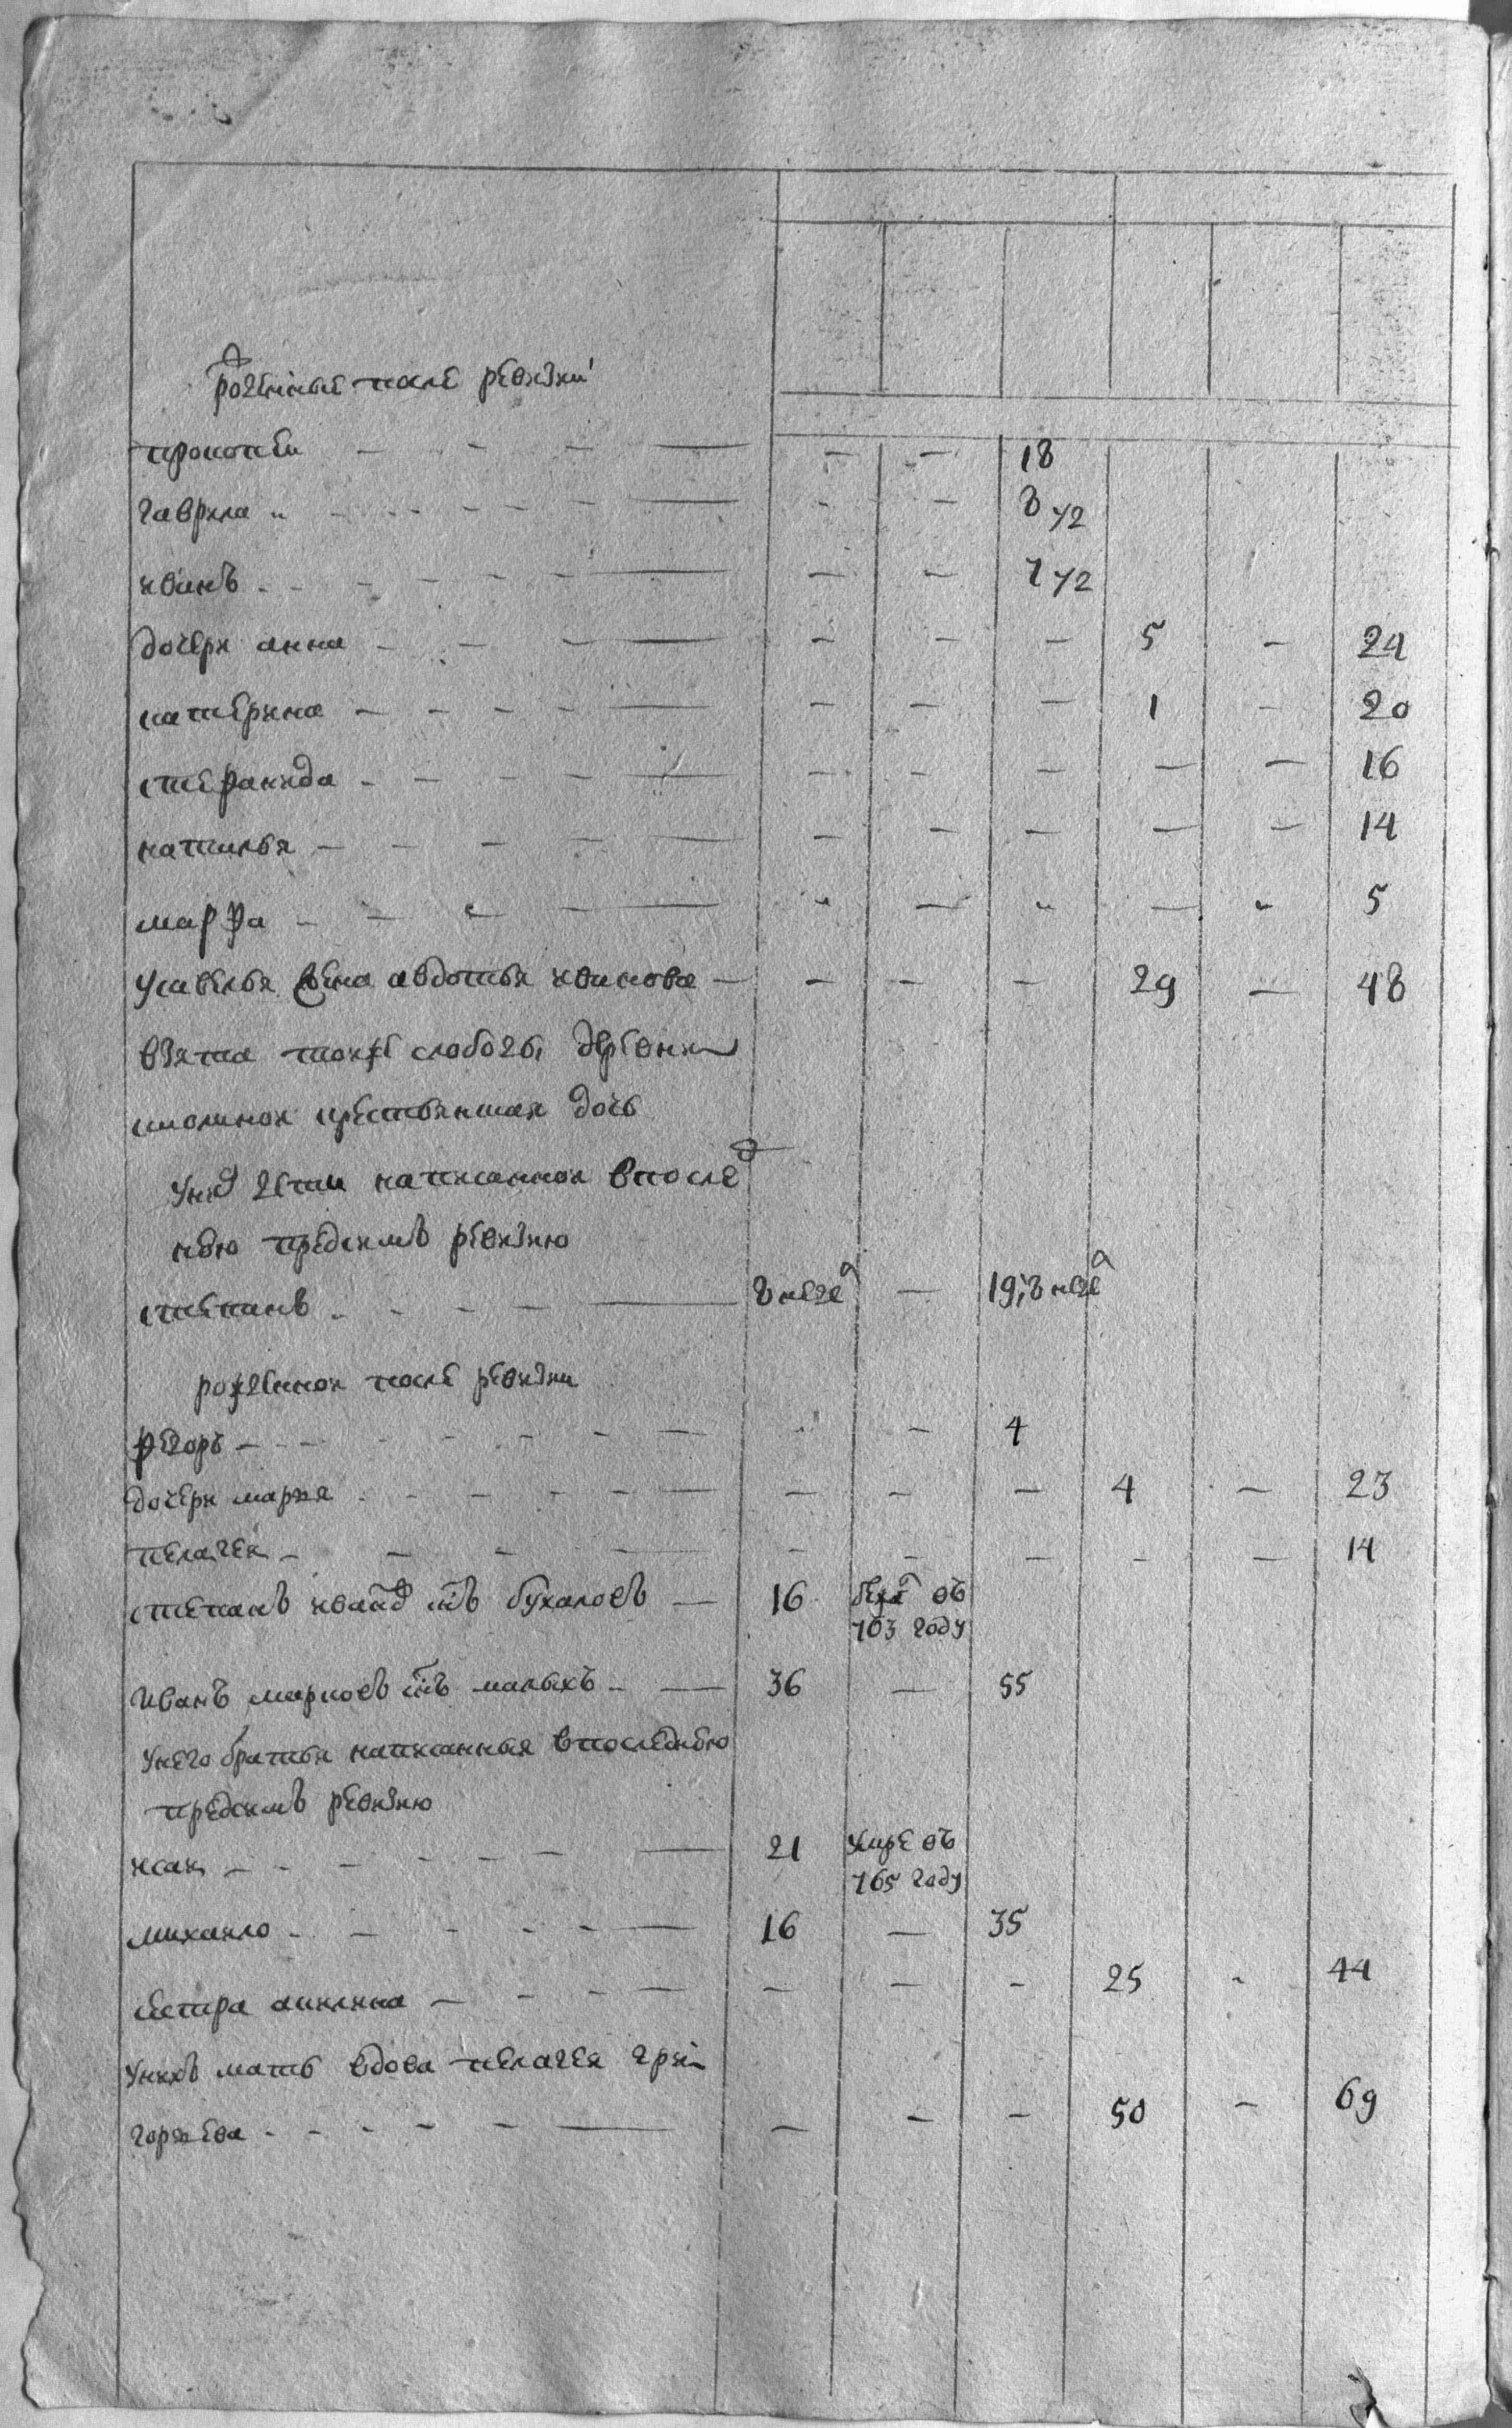 рожденные после ревизии
прокопеи — — — — — — 18
гаврила — — — — — — 8 1/2
иванъ — — — — — — 7 1/2
дочери анна — — — — — — — 5 — 24
катерина — — — — — — — 1 — 20
степанида — — — — — — — — — 16
наталья — — — — — — — — — 14
марфа — — — — — — — — — 5
Усавелья жена авдотья иванова — — — — 29 — 48
взята тоижъ слободы деревни
крестьянская дочь
Унихъ дети написанной впослед
нюю предсимъ ревизию
степанъ — — — — 8 неде — 19; 8 неде
рожденной после ревизии
федоръ — — — — — — 4
дочери марья — — — — — — — 4 — 23
пелагея — — — — — — — — — 14
степанъ ивановъ снъ бухаловъ — 16 бежа въ
763 году
Иванъ марковъ снъ малыхъ — — 36 — 55
Унего братья написанныя впоследнюю
предсимъ ревизию
исаи — — — — — — 21 умре въ
765 году
михаило — — — — — 16 — 35
сестра акилина — — — — — — — 25 - 44
Унихъ мать вдова пелагея гри
горьева — — — — — — — — 50 — 69